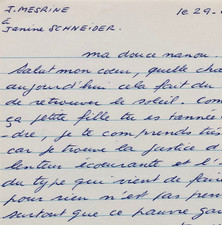 J. MESRINE le 29-
à
Janine SCHNEIDER.
ma douce nanou.
Salut mon cœur, quelle cha
aujourd'hui cela fait du
de retrouver le soleil. Com
ça petite fille tu es année
dre, je te comprends tu
car je trouve la justice d
lenteur écœurante et l'
du type qui vient de fai
pour rien n'est pas pren
surtout que ce pauvre gar